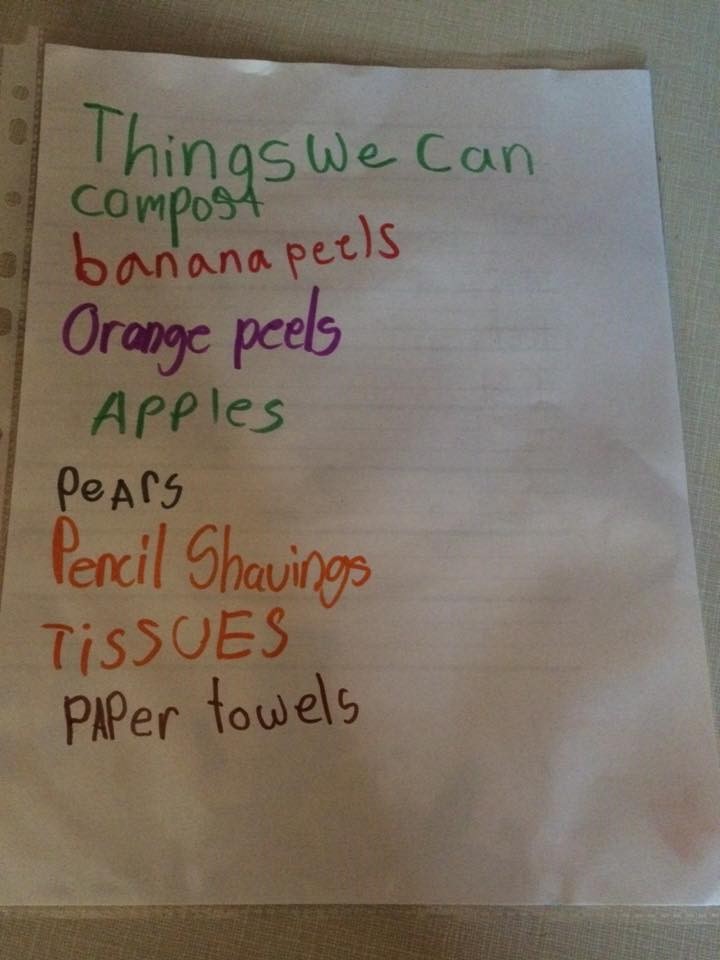 Things We Can
compost
banana peels
Orange peels
APPles
PeArs
Pencil Shavings
TiSSUES
PAPer towels